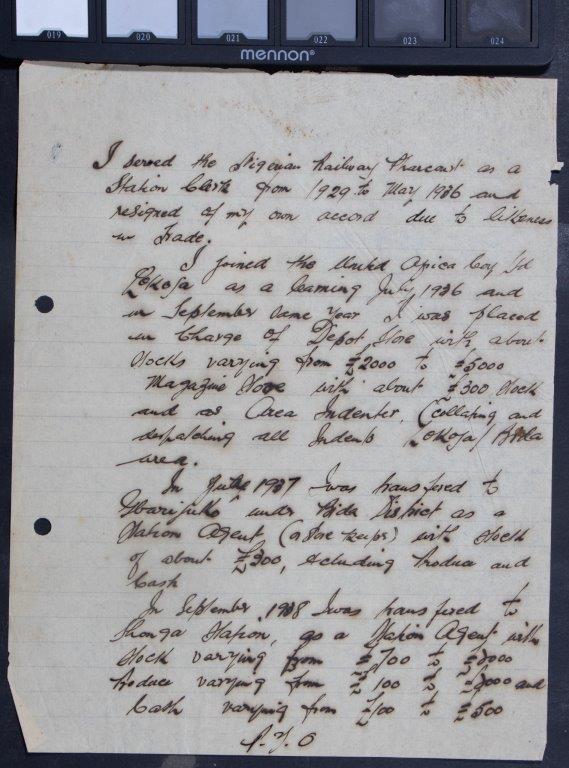 019 020 021 022 023 024
mennon®
I served the Nigerian Railway as a
Station Clerk from 1929 to May 1936 and
resigned of my own accord due to likeness
in Trade.
I joined the United Africa Coy Ltd
Lokoja as a learning July 1936 and
in September same year I was placed
in Charge of Depot Store with about
stocks varying from £2000 to £5000
Magazine Store with about £300 stock
and as Area Indenter, (collating and
despatching all Indents Lokoja/Bida
area.
In 1937 I was transfered to
under Bida District as a
Station Agent, (or Store keeper) with stock
of about £300, excluding Produce and
Cash
In September 1938 I was transfered to
Shonga Station, as a Station Agent with
stock varying from £700 to
Produce varying from £100 to £2000 and
Cash varying from £100 to £500
P.T.O